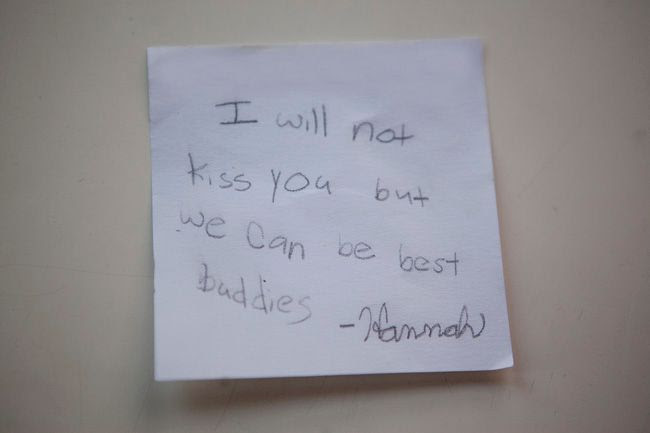 I will not
kiss you but
we can be best
buddies
-Hannah